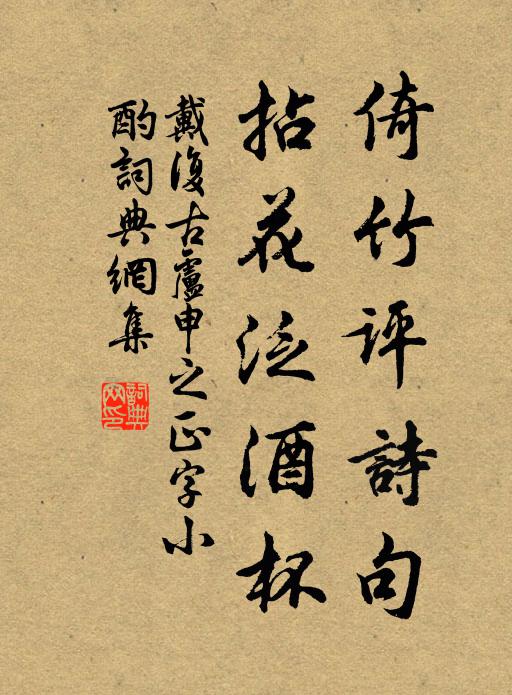 倚竹評詩句
拈花泛酒杯
戴復古盧申之正字小
酌詞典網集
詞典
網印